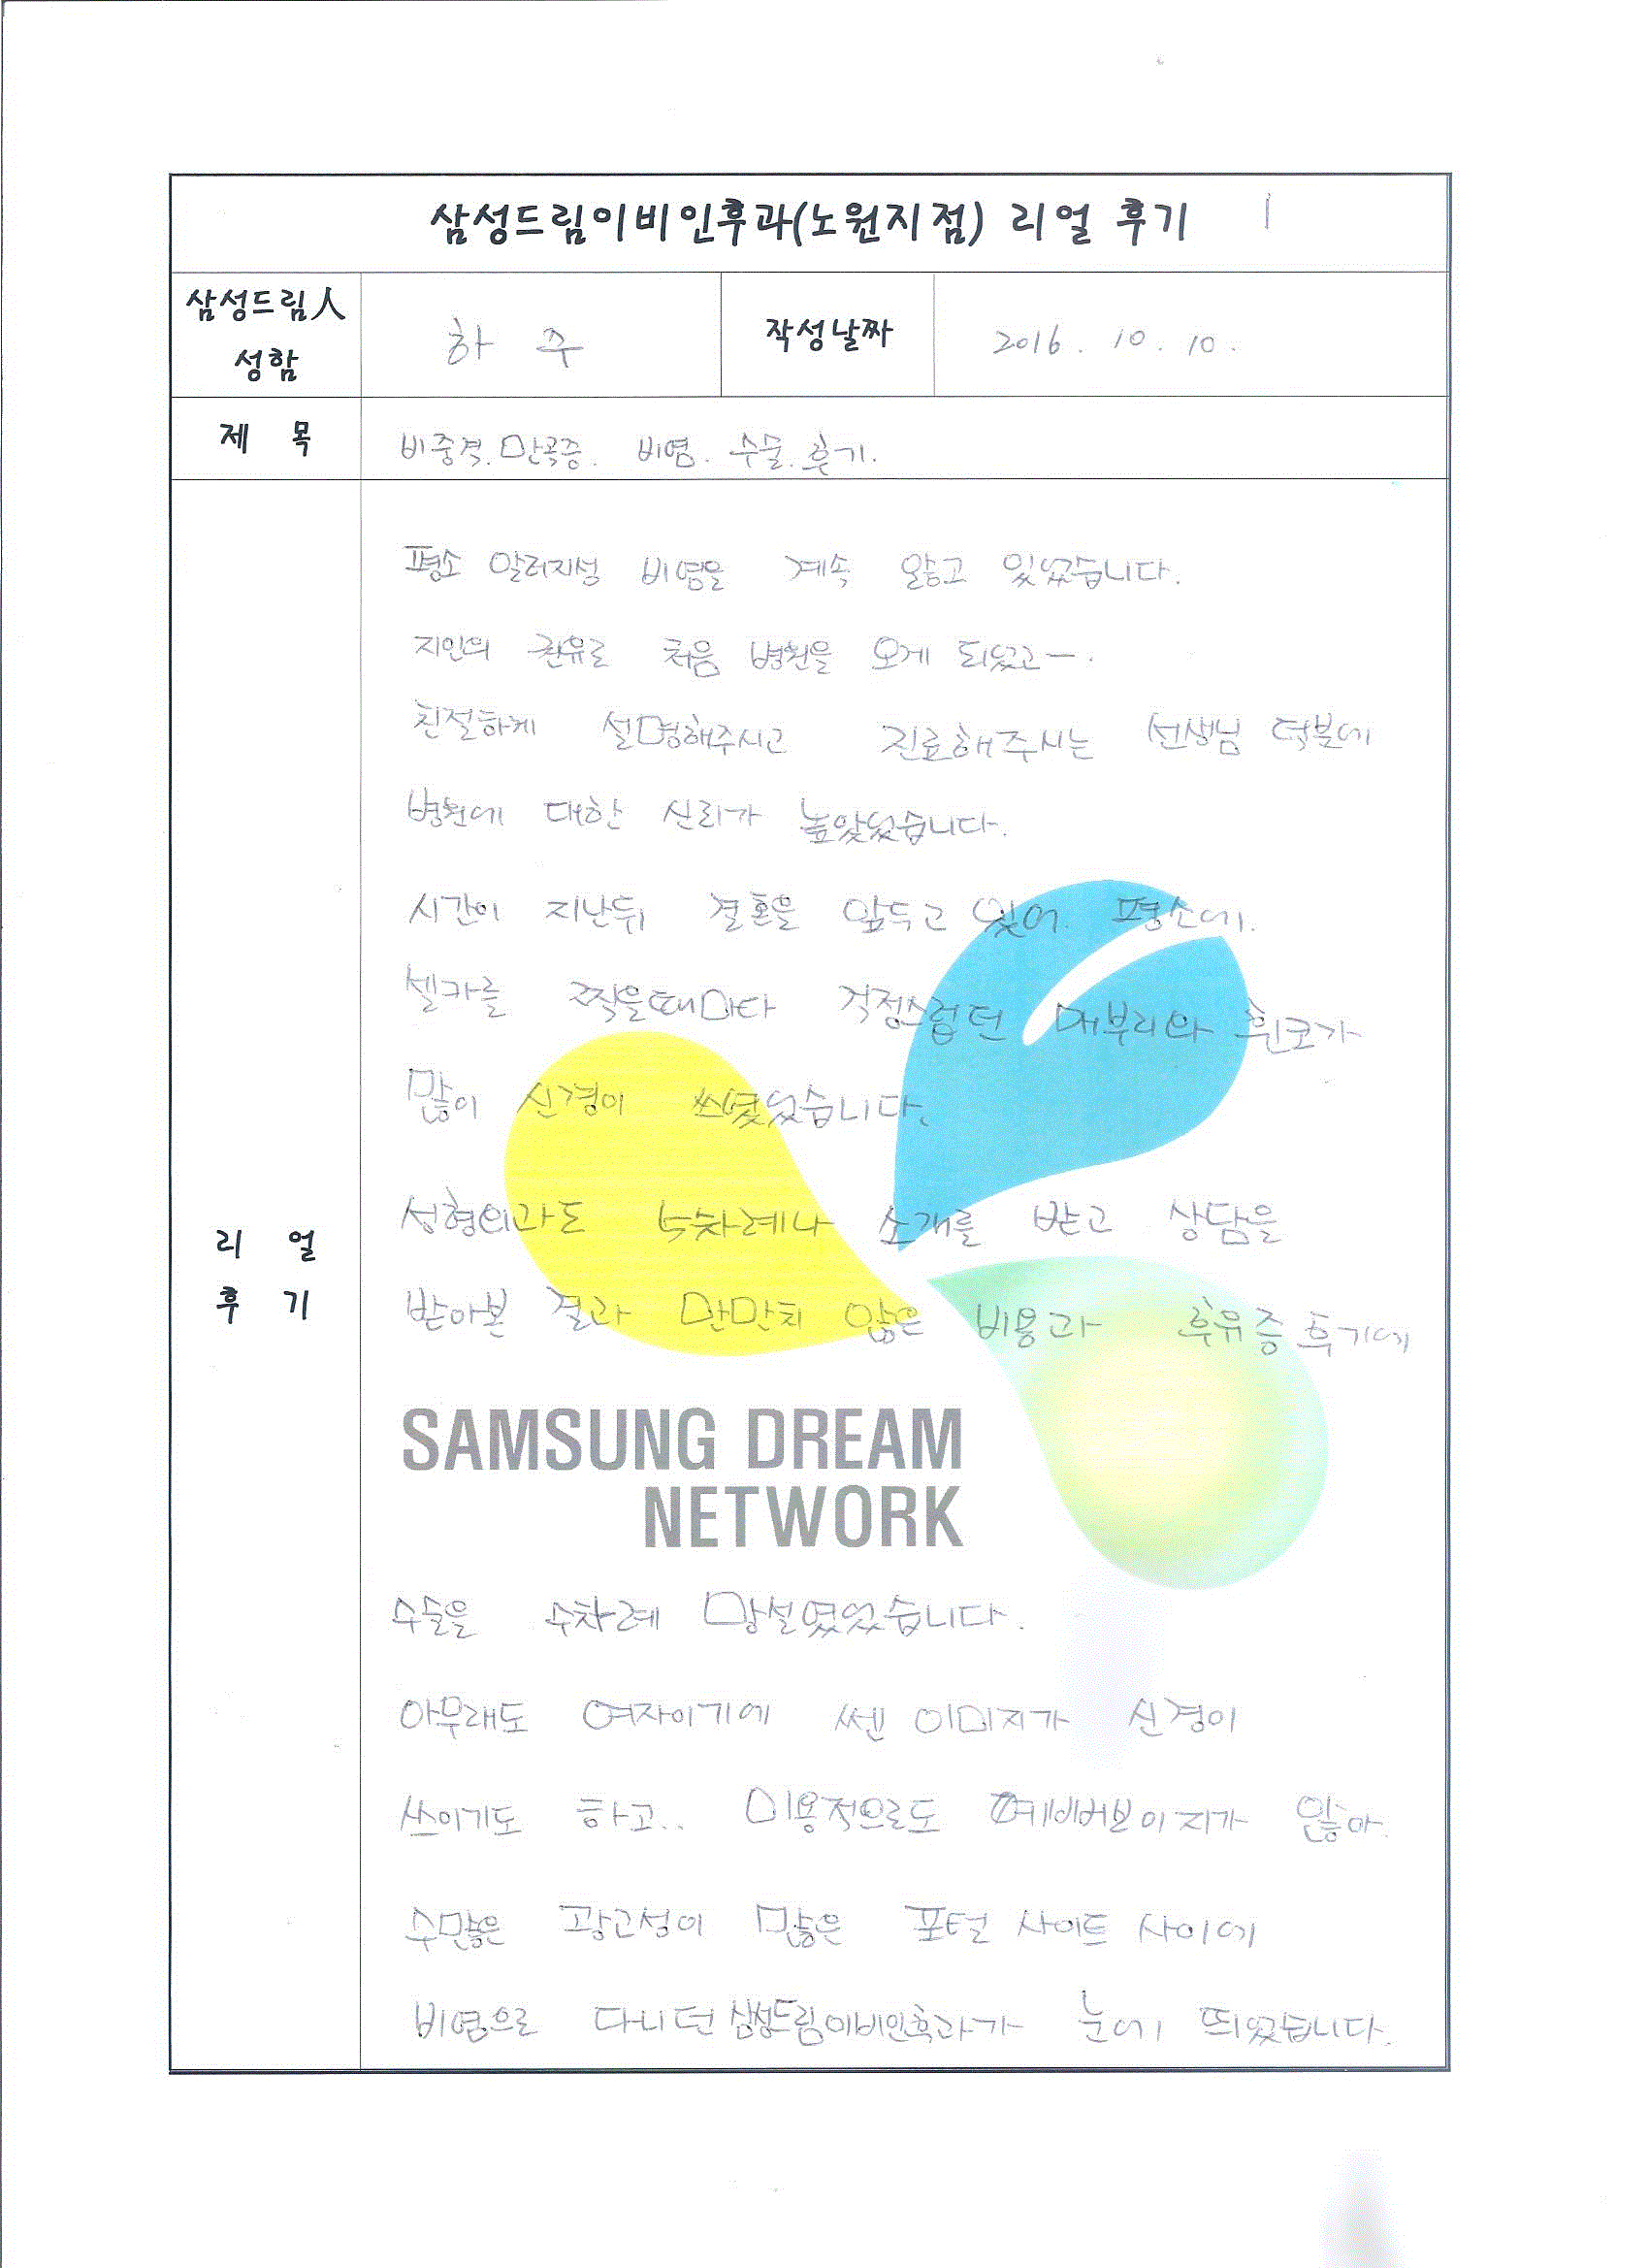 삼성드림이비인후과(노원지점) 리얼 후기 1
삼성드림人
성함
하 주
작성날짜
2016. 10. 10.
제 목
비중격.만곡증. 비염. 수술.후기.
평소 알러지성 비염을 계속 앓고 있었습니다.
지인의 권유로 처음 병원을 오게 되었고ㅡ.
친절하게 설명해주시고 진료해주시는 선생님 덕분에
병원에 대한 신뢰가 높았었습니다.
시간이 지난뒤 결혼을 앞두고 있어. 평소에.
셀카를 찍을때마다 걱정스럽던 매부리와 휜코가
많이 신경이 쓰였었습니다.
리 얼
후 기
성형외과도 수차례나 소개를 받고 상담을
받아본 결과 만만치 않은 비용과 후유증 후기에
SAMSUNG DREAM
NETWORK
수술을 수차례 망설였었습니다.
아무래도 여자이기에 쎈 이미지가 신경이
쓰이기도 하고.. 미용적으로도 예뻐보이지가 않아.
수많은 광고성이 많은 포털 사이트 사이에
비염으로 다니던 삼성드림이비인후과가 눈에 띄었습니다.